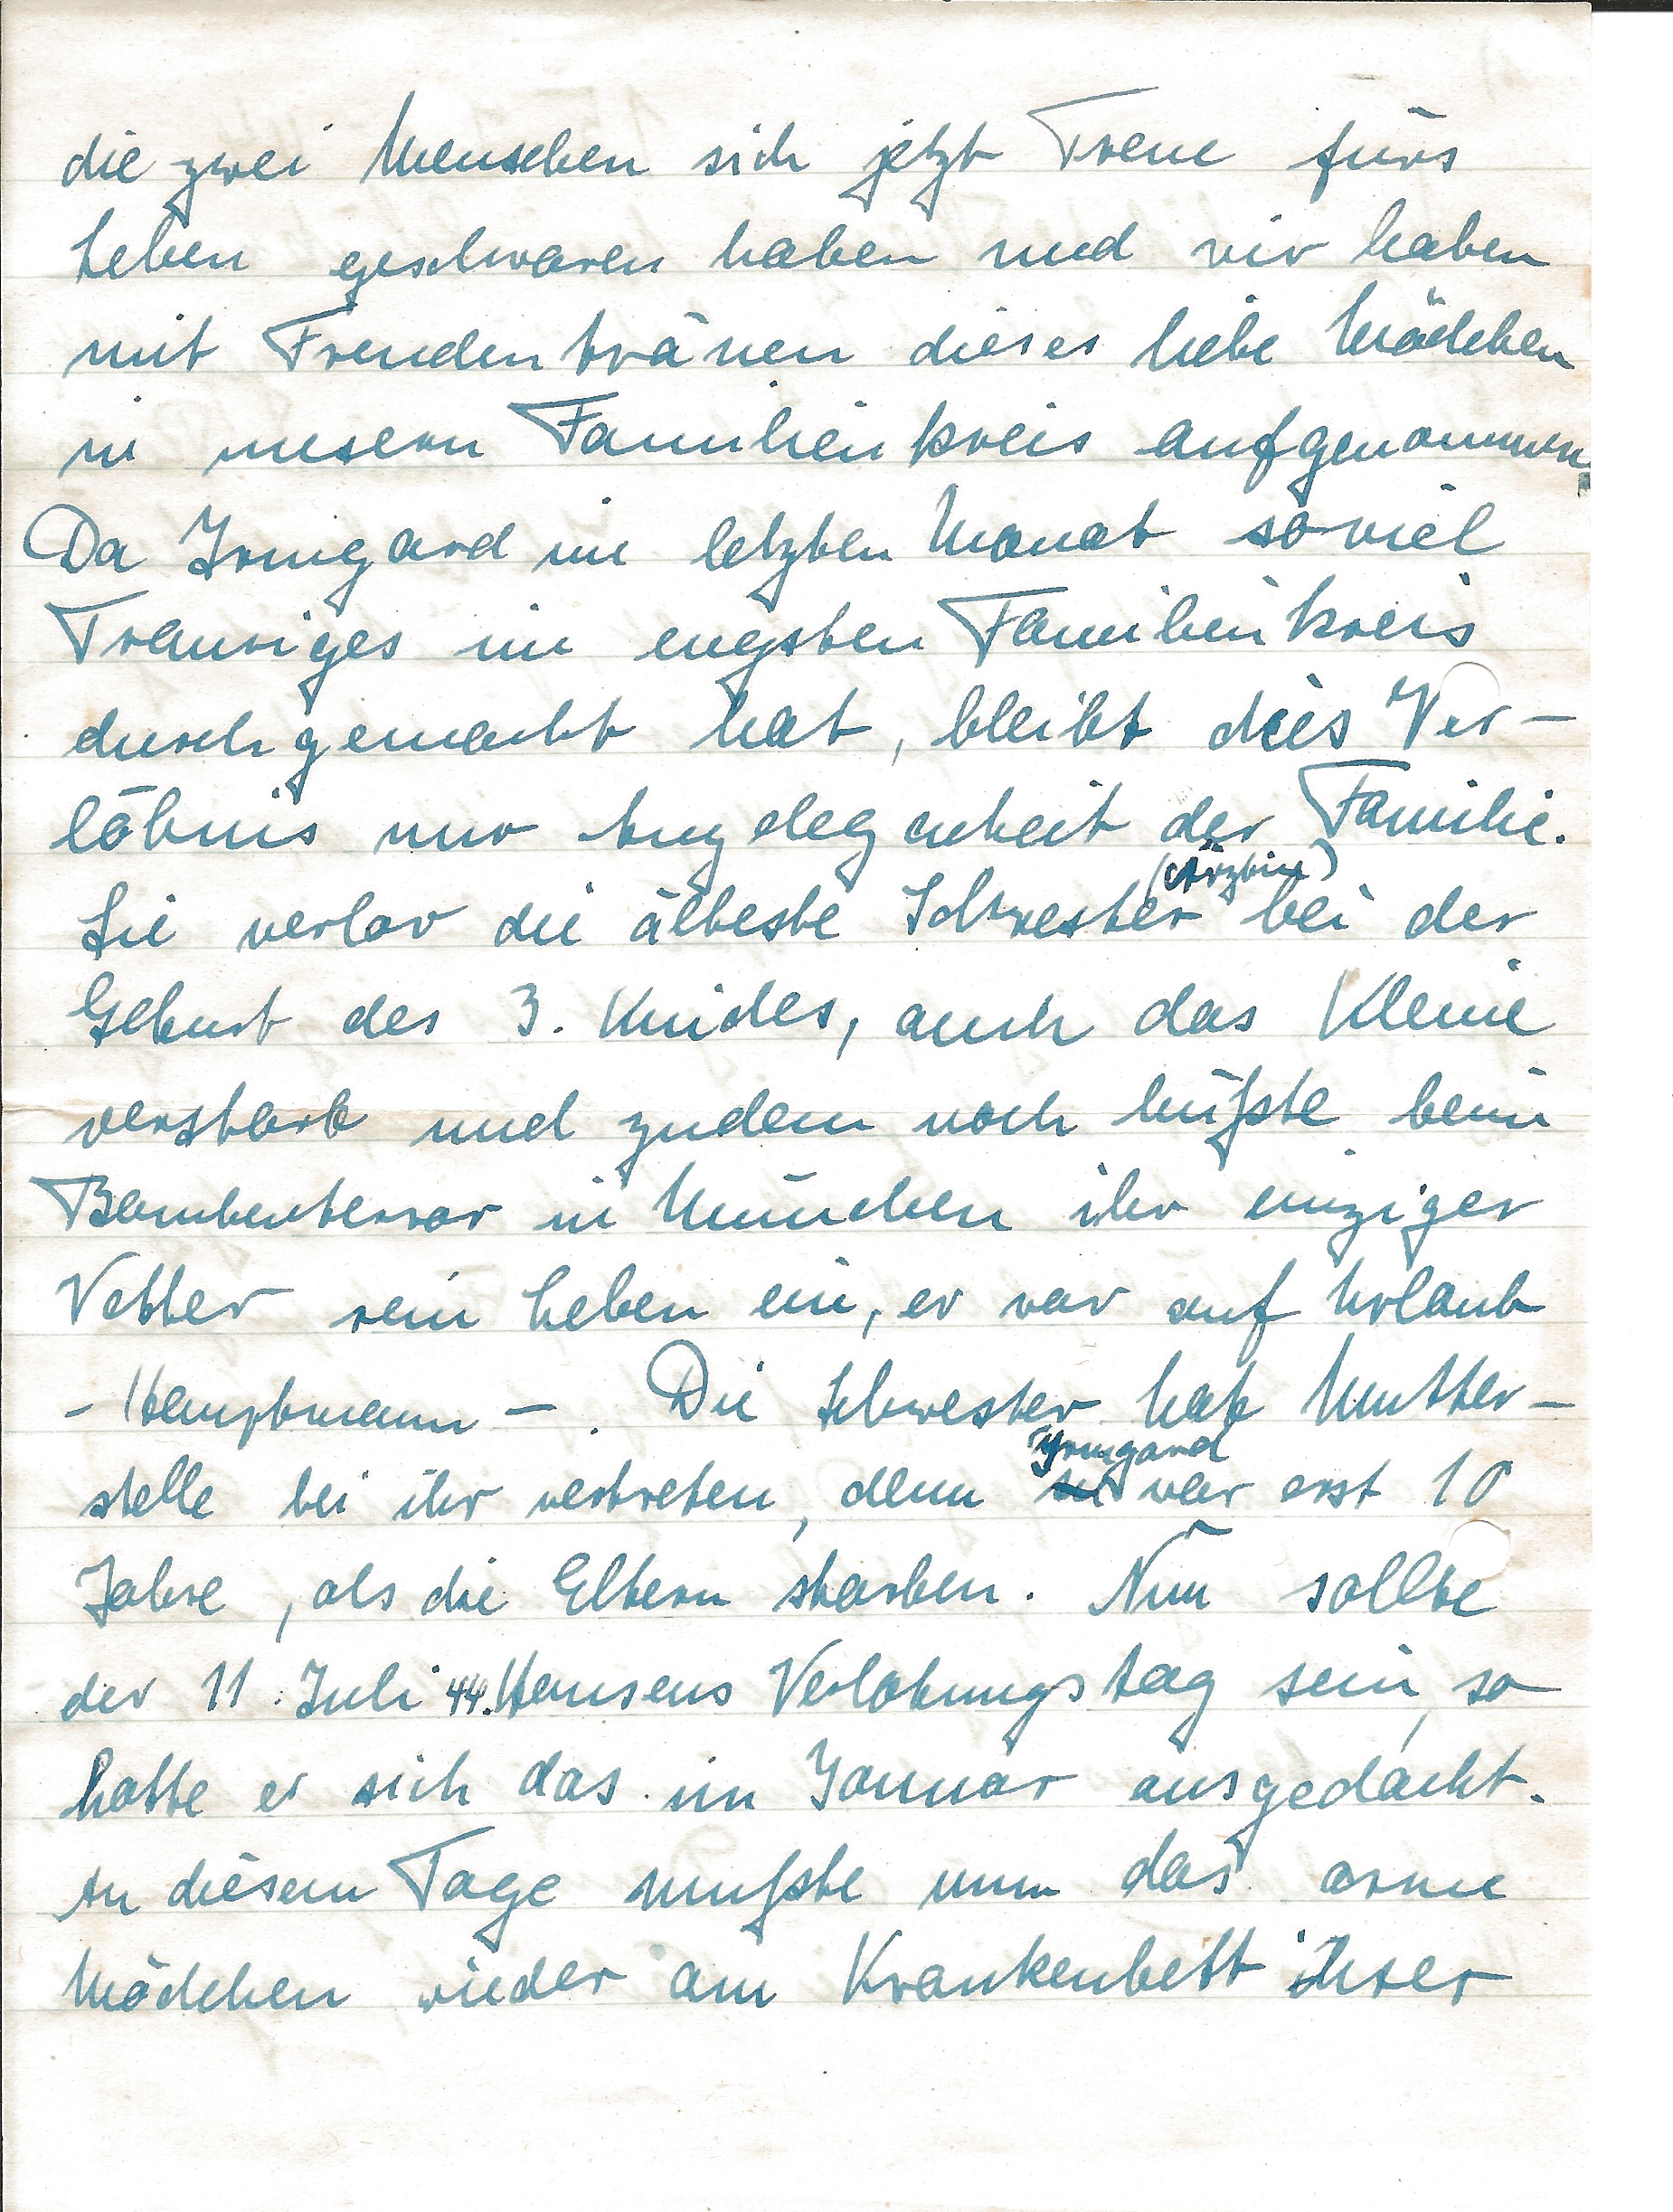 die zwei Menschen sich jetzt Treue fürs
Leben geschworen haben und wir haben
mit Freudentränen dieses liebe Mädchen
in unsern Familienkreis aufgenommen.
Da Irmgard im letzten Monat soviel
Trauriges im engsten Familienkreis
durchgemacht hat, bleibt dies Ver-
löbnis nur Angelegenheit der Familie.
(Ärztin)
Sie verlor die älteste Schwester bei der
Geburt des 3. Kindes, auch das Kleine
verstarb und zudem noch büßte beim
Bombenterror in München ihr einziger
Vetter sein Leben ein, er war auf Urlaub
- Hauptmann -. Die Schwester hat Mutter-
Irmgard
stelle bei ihr vertreten, denn sie war erst 10
Jahre, als die Eltern starben. Nun sollte
der 11. Juli 44. Hansens Verlobungstag sein, so
hatte er sich das im Januar ausgedacht.
An diesem Tage mußte nun das arme
Mädchen wieder am Krankenbett ihrer